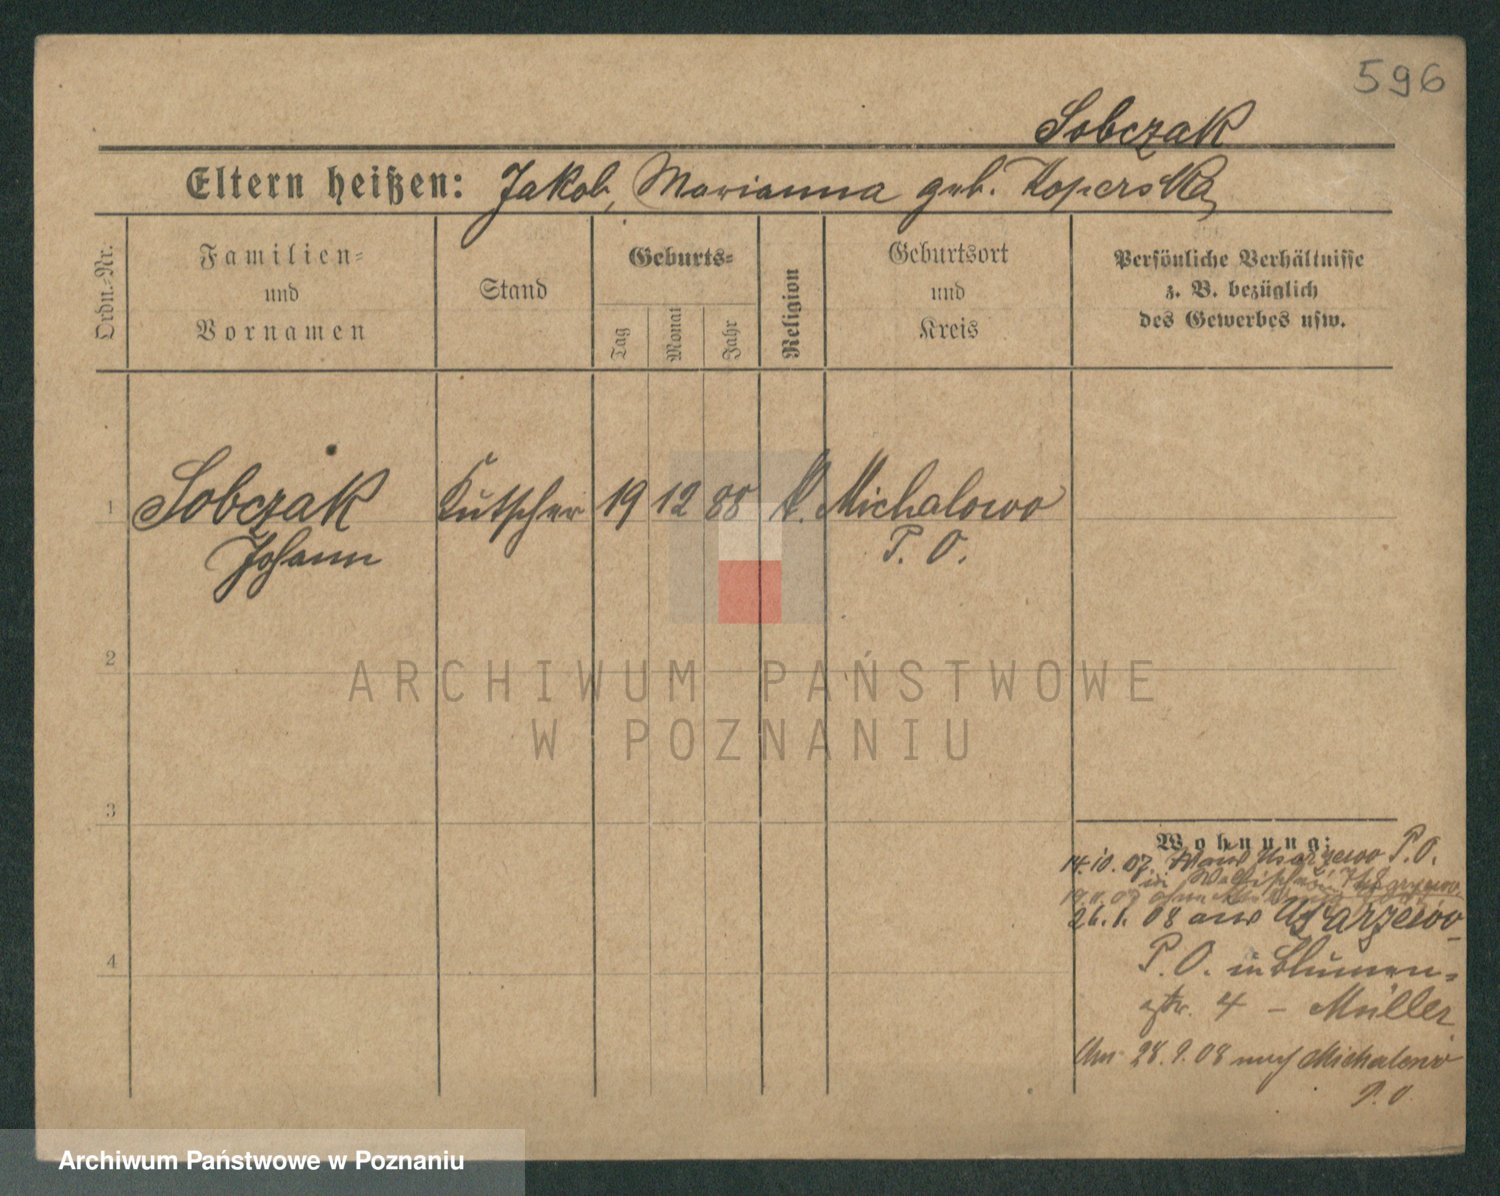 596
Sobczak
Eltern heißen: Jakob, Marianna geb. Koperska
Ordn.-Nr.
Familien-
und
Vornamen
Stand
Geburts-
Tag
Monat
Jahr
Religion
Geburtsort
und
Kreis
Persönliche Verhältnisse
z. B. bezüglich
des Gewerbes usw.
1 Sobczak Kutscher 19 12 88 k. Michalowo
Johann P. O.
2
ARCHIWUM PAŃSTWOWE
W POZNANIU
3
Wohnung:
14.10.07 P.O.
in
26.1.08 aus Usarzewo
P.O. in Blumen-
str. 4 - Müller
28.9.08 nach Michalowo
P.O.
4
Archiwum Państwowe w Poznaniu